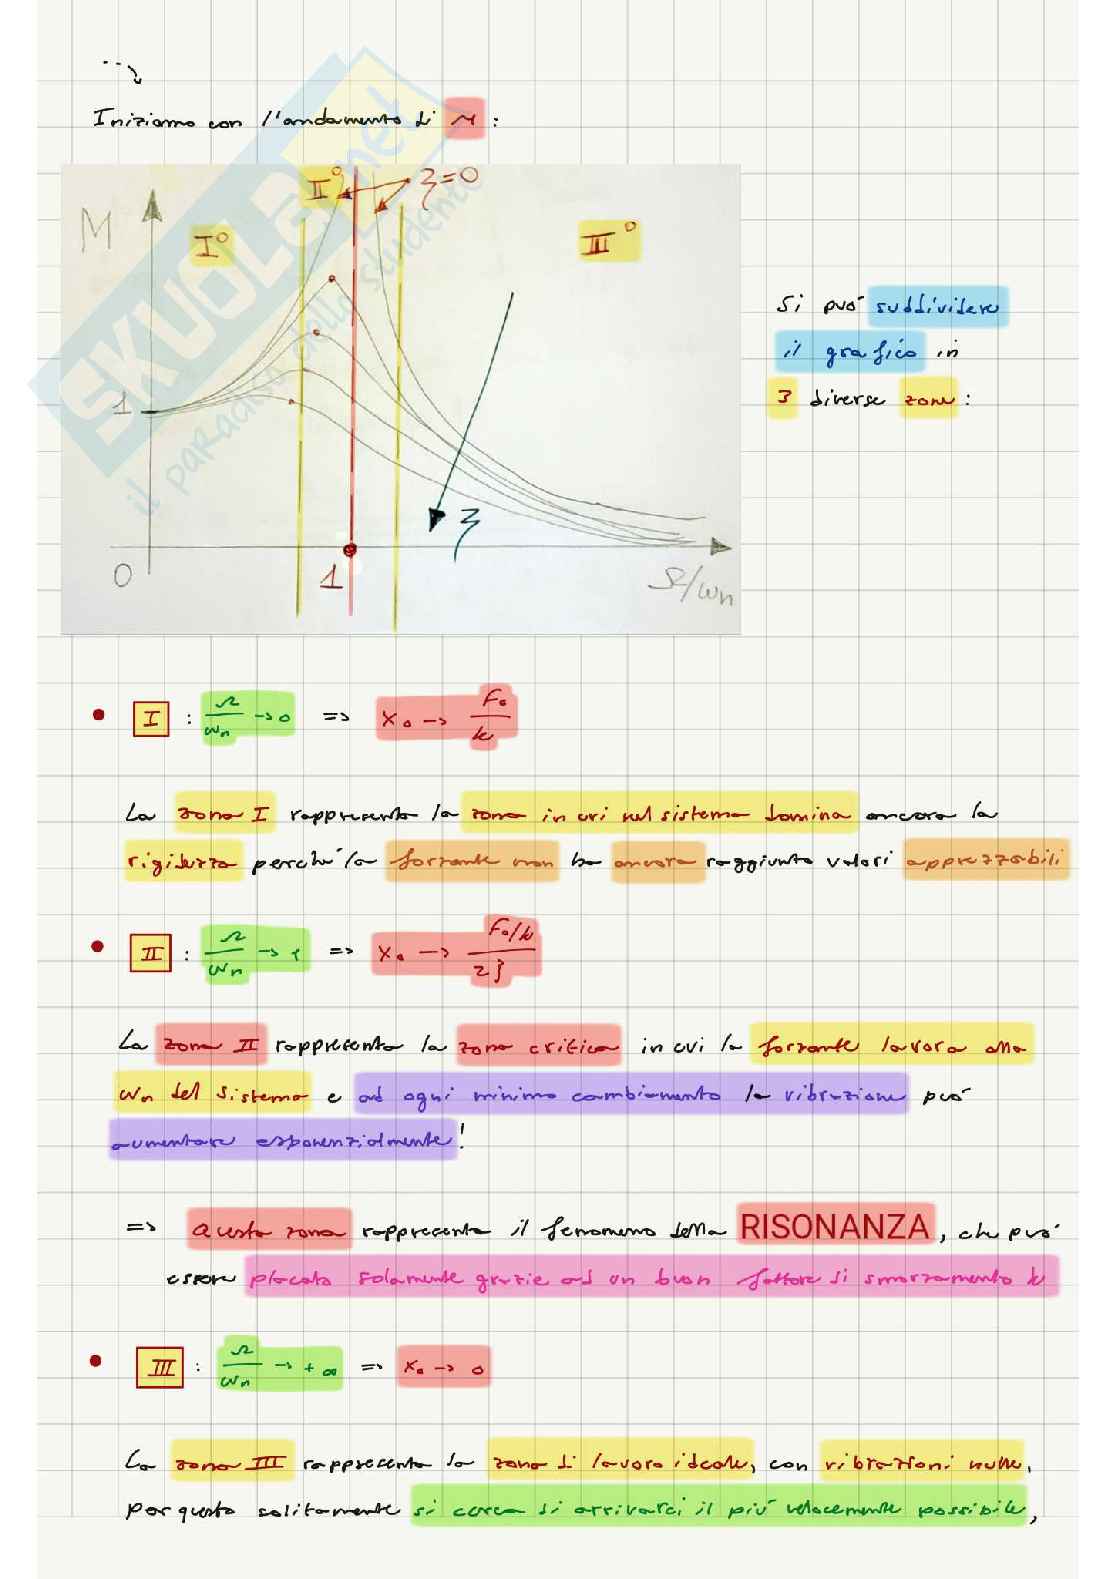 Iniziamo con l'andamento di M :
SKUOLA.net
il paradiso dello studente
M
I°
II°
ζ=0
III°
1
ζ
0
1
Ω/ωn
Si può suddividere
il grafico in
3 diverse zone:
• I : Ω/ωn → 0 => X₀ → F₀/k
La zona I rappresenta la zona in cui nel sistema domina ancora la
rigidezza perché la forzante non ha ancora raggiunto valori apprezzabili
• II : Ω/ωn → 1 => X₀ → (F₀/k)/2ζ
La zona II rappresenta la zona critica in cui la forzante lavora alla
ωn del sistema e ad ogni minimo cambiamento la vibrazione può
aumentare esponenzialmente!
=> Questa zona rappresenta il fenomeno della RISONANZA, che può
essere placato solamente grazie ad un buon fattore di smorzamento
• III : Ω/ωn → +∞ => X₀ → 0
La zona III rappresenta la zona di lavoro ideale, con vibrazioni nulle,
per questo solitamente si cerca di arrivarci il più velocemente possibile,